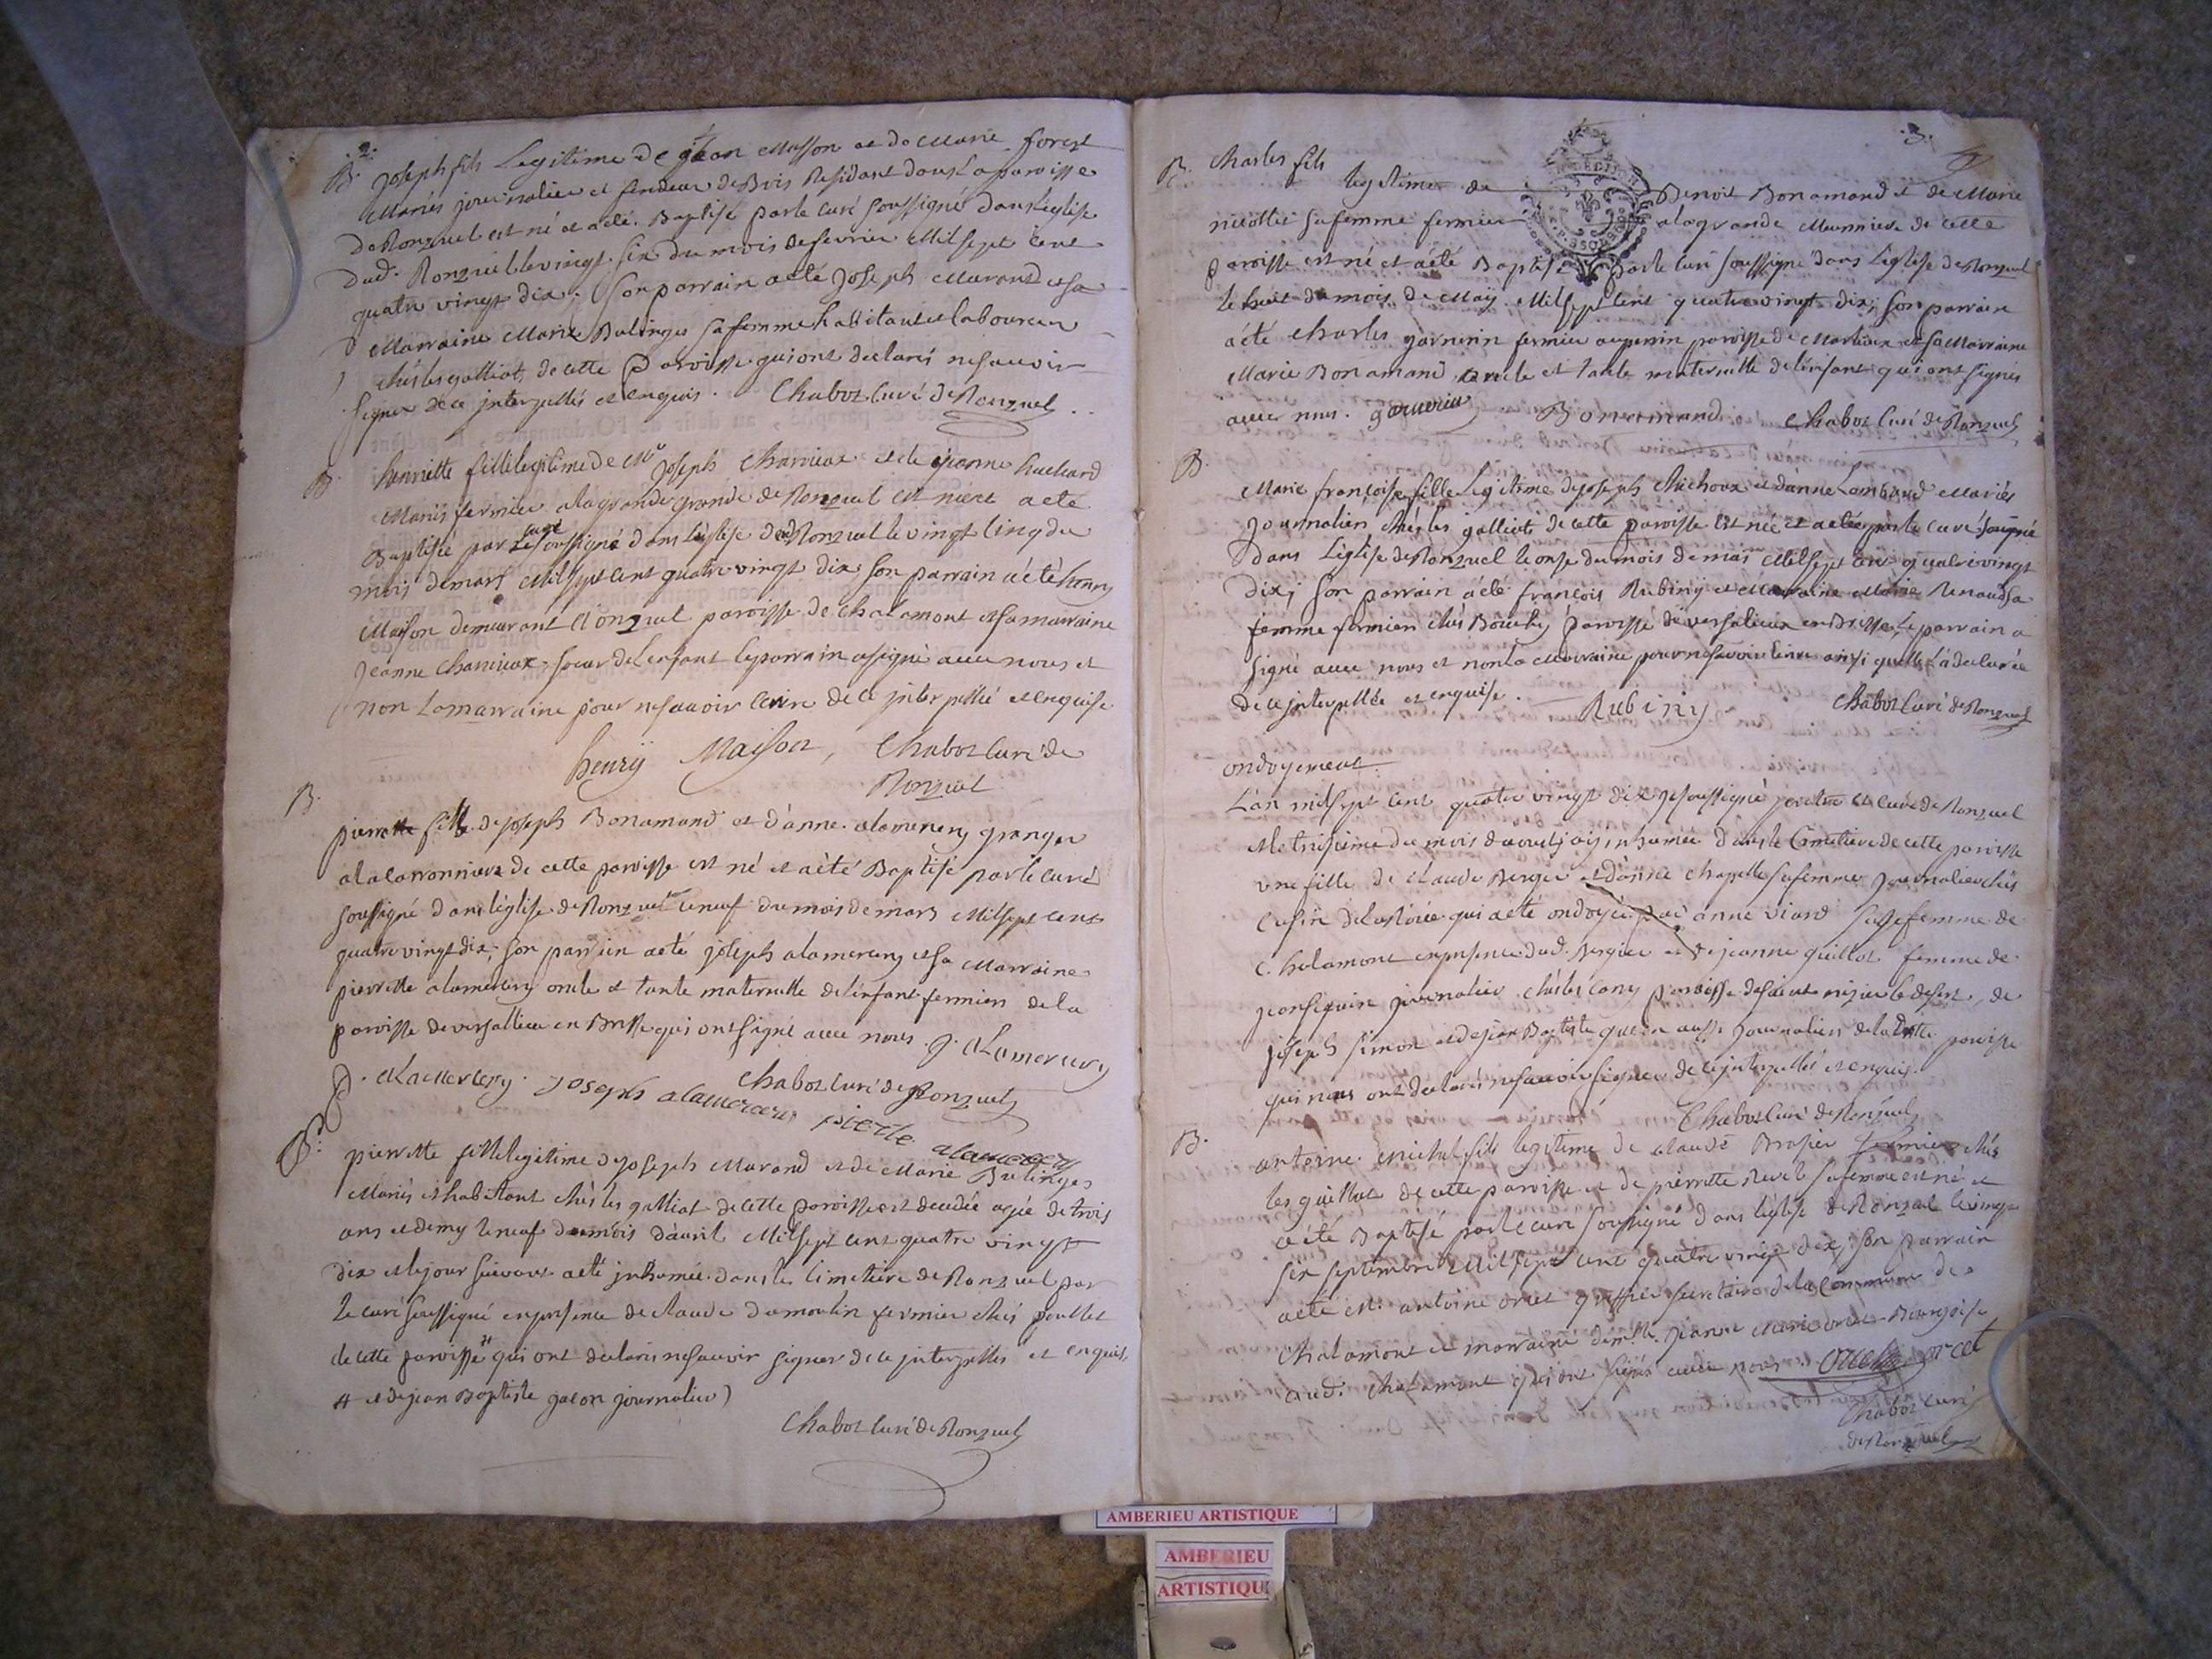 .2.
B. joseph fils Legitime De jean Musson et de Marie forest
Mariés journalier et fendeur de Bois Residant dans La paroisse
de Ronzuel est né et a été Baptisé par le curé soussigné dans l'église
dud. Ronzuel le vingt six du mois de fevrier Mil sept cent
quatre vingt dix. Son parrain a eté joseph Marand et sa
Marraine Marie Bulinges sa femme habitant et laboureur
chés les galliat de cette Paroisse qui ont declarés ne savoir
signer de ce interpellés et enquis. Chabot Curé de Ronzuel
B. henriette fille legitime de Mr joseph Charvieux et de jeanne huchard
Mariés fermier a la grande grande de Ronzuel est née et a eté
Baptisée par Le curé soussigné dans L'église de Ronzuel le vingt cinq du
mois de mars Mil sept cent quatre vingt dix son parrain a été henry
Maison demeurant a Ronzuel paroisse de Chalamont et sa marraine
jeanne Charvieux soeur de l'enfant le parrain a signé avec nous et
non La marraine pour ne savoir ecrire de ce interpellée et enquise
henry Maison, Chabot Curé de
Ronzuel
B. pierrette fille de joseph Bonamand et d'anne alamercery granger
a la Caronniere de cette paroisse est né et a été Baptisé par le curé
soussigné dans l'église de Ronzuel le neuf du mois de mars Mil sept cent
quatre vingt dix; son parrain a eté joseph alamercery et sa Marraine
pierrette alamercery oncle et tante maternelle de l'enfant fermiers de la
paroisse de versallieu en Bresse qui ont signé avec nous. J. alamercery
P. alamercery. joseph alamercery Chabot Curé de Ronzuel
pierre alamercery
pierrette fille legitime de joseph Marand et de Marie Bulinges
Mariés et habitant chés les galliat de cette paroisse est decedée agée de trois
ans et demy le neuf du mois d'avril Mil sept cent quatre vingt
dix et le jour suivant a eté inhumée dans le Cimetiere de Ronzuel par
Le curé soussigné en presence de claude dumoulin fermier chés poullet
de cette paroisse # qui ont declarés ne savoir signer de ce interpellés et enquis,
# et de jean Baptiste galon journalier)
Chabot Curé de Ronzuel
.3.
B. Charles fils
legitime de Benoit Bonamand et de Marie
nicollet sa femme fermier a la grande Meunniere de cette
paroisse est né et a été Baptisé par le curé soussigné dans l'église de Ronzuel
le huit du mois de May Mil sept cent quatre vingt dix; son parrain
a été Charles garnerin fermier au perrin paroisse de Marlieux et sa Marraine
Marie Bonamand oncle et tante maternelle de l'enfant qui ont signés
avec nous. garnerin Bonnamand Chabot Curé de Ronzuel
B. Marie françoise fille Legitime de joseph Michoux et d'anne Lombard Mariés
journaliers chés les galliat de cette paroisse est née et a eté par le curé soussigné
dans L'église de Ronzuel le onze du mois de mai Mil sept cent quatre vingt
dix; son parrain a été françois Rubiny et Marraine Marie Renaud sa
femme fermiers chés Bouchy paroisse de versalieux en Bresse, Le parrain a
signé avec nous et non la Marraine pour ne savoir ecrire ainsi qu'elle l'a declarée
de ce interpellée et enquise. Rubiny Chabot Curé de Ronzuel
ondoyement.
L'an mil sept cent quatre vingt dix je soussigné pretre et curé de Ronzuel
et le treizieme du mois d'aoust j'ai inhumée dans le Cimetiere de cette paroisse
une fille de claude Berger et d'anne Chapelle sa femme journalier chés
qui a eté ondoyée par anne viard sage femme de
Chalamont en presence dud. Bergier et de jeanne guillot femme de
journalier chés les Cany paroisse de saint nizier le desert, de
joseph Simon et de jean Baptiste aussi journaliers de ladite paroisse
qui nous ont declarés ne savoir signer de ce interpellés et enquis.
Chabot Curé de Ronzuel
B. antoine michel fils legitime de claude Brasier fermier chés
les guillot de cette paroisse et de pierrette Revel sa femme est né et
a été Baptisé par le curé soussigné dans l'église de Ronzuel le vingt
six septembre Mil sept cent quatre vingt dix; son parrain
a eté est antoine orcet greffier secretaire de la commune de
Chalamont et marraine demlle. jeanne Marie orcet Bourgoise
aud. Chalamont qui ont signés avec nous. orcet orcet
Chabot curé
de Ronzuel
AMBERIEU ARTISTIQUE
AMBERIEU
ARTISTIQU